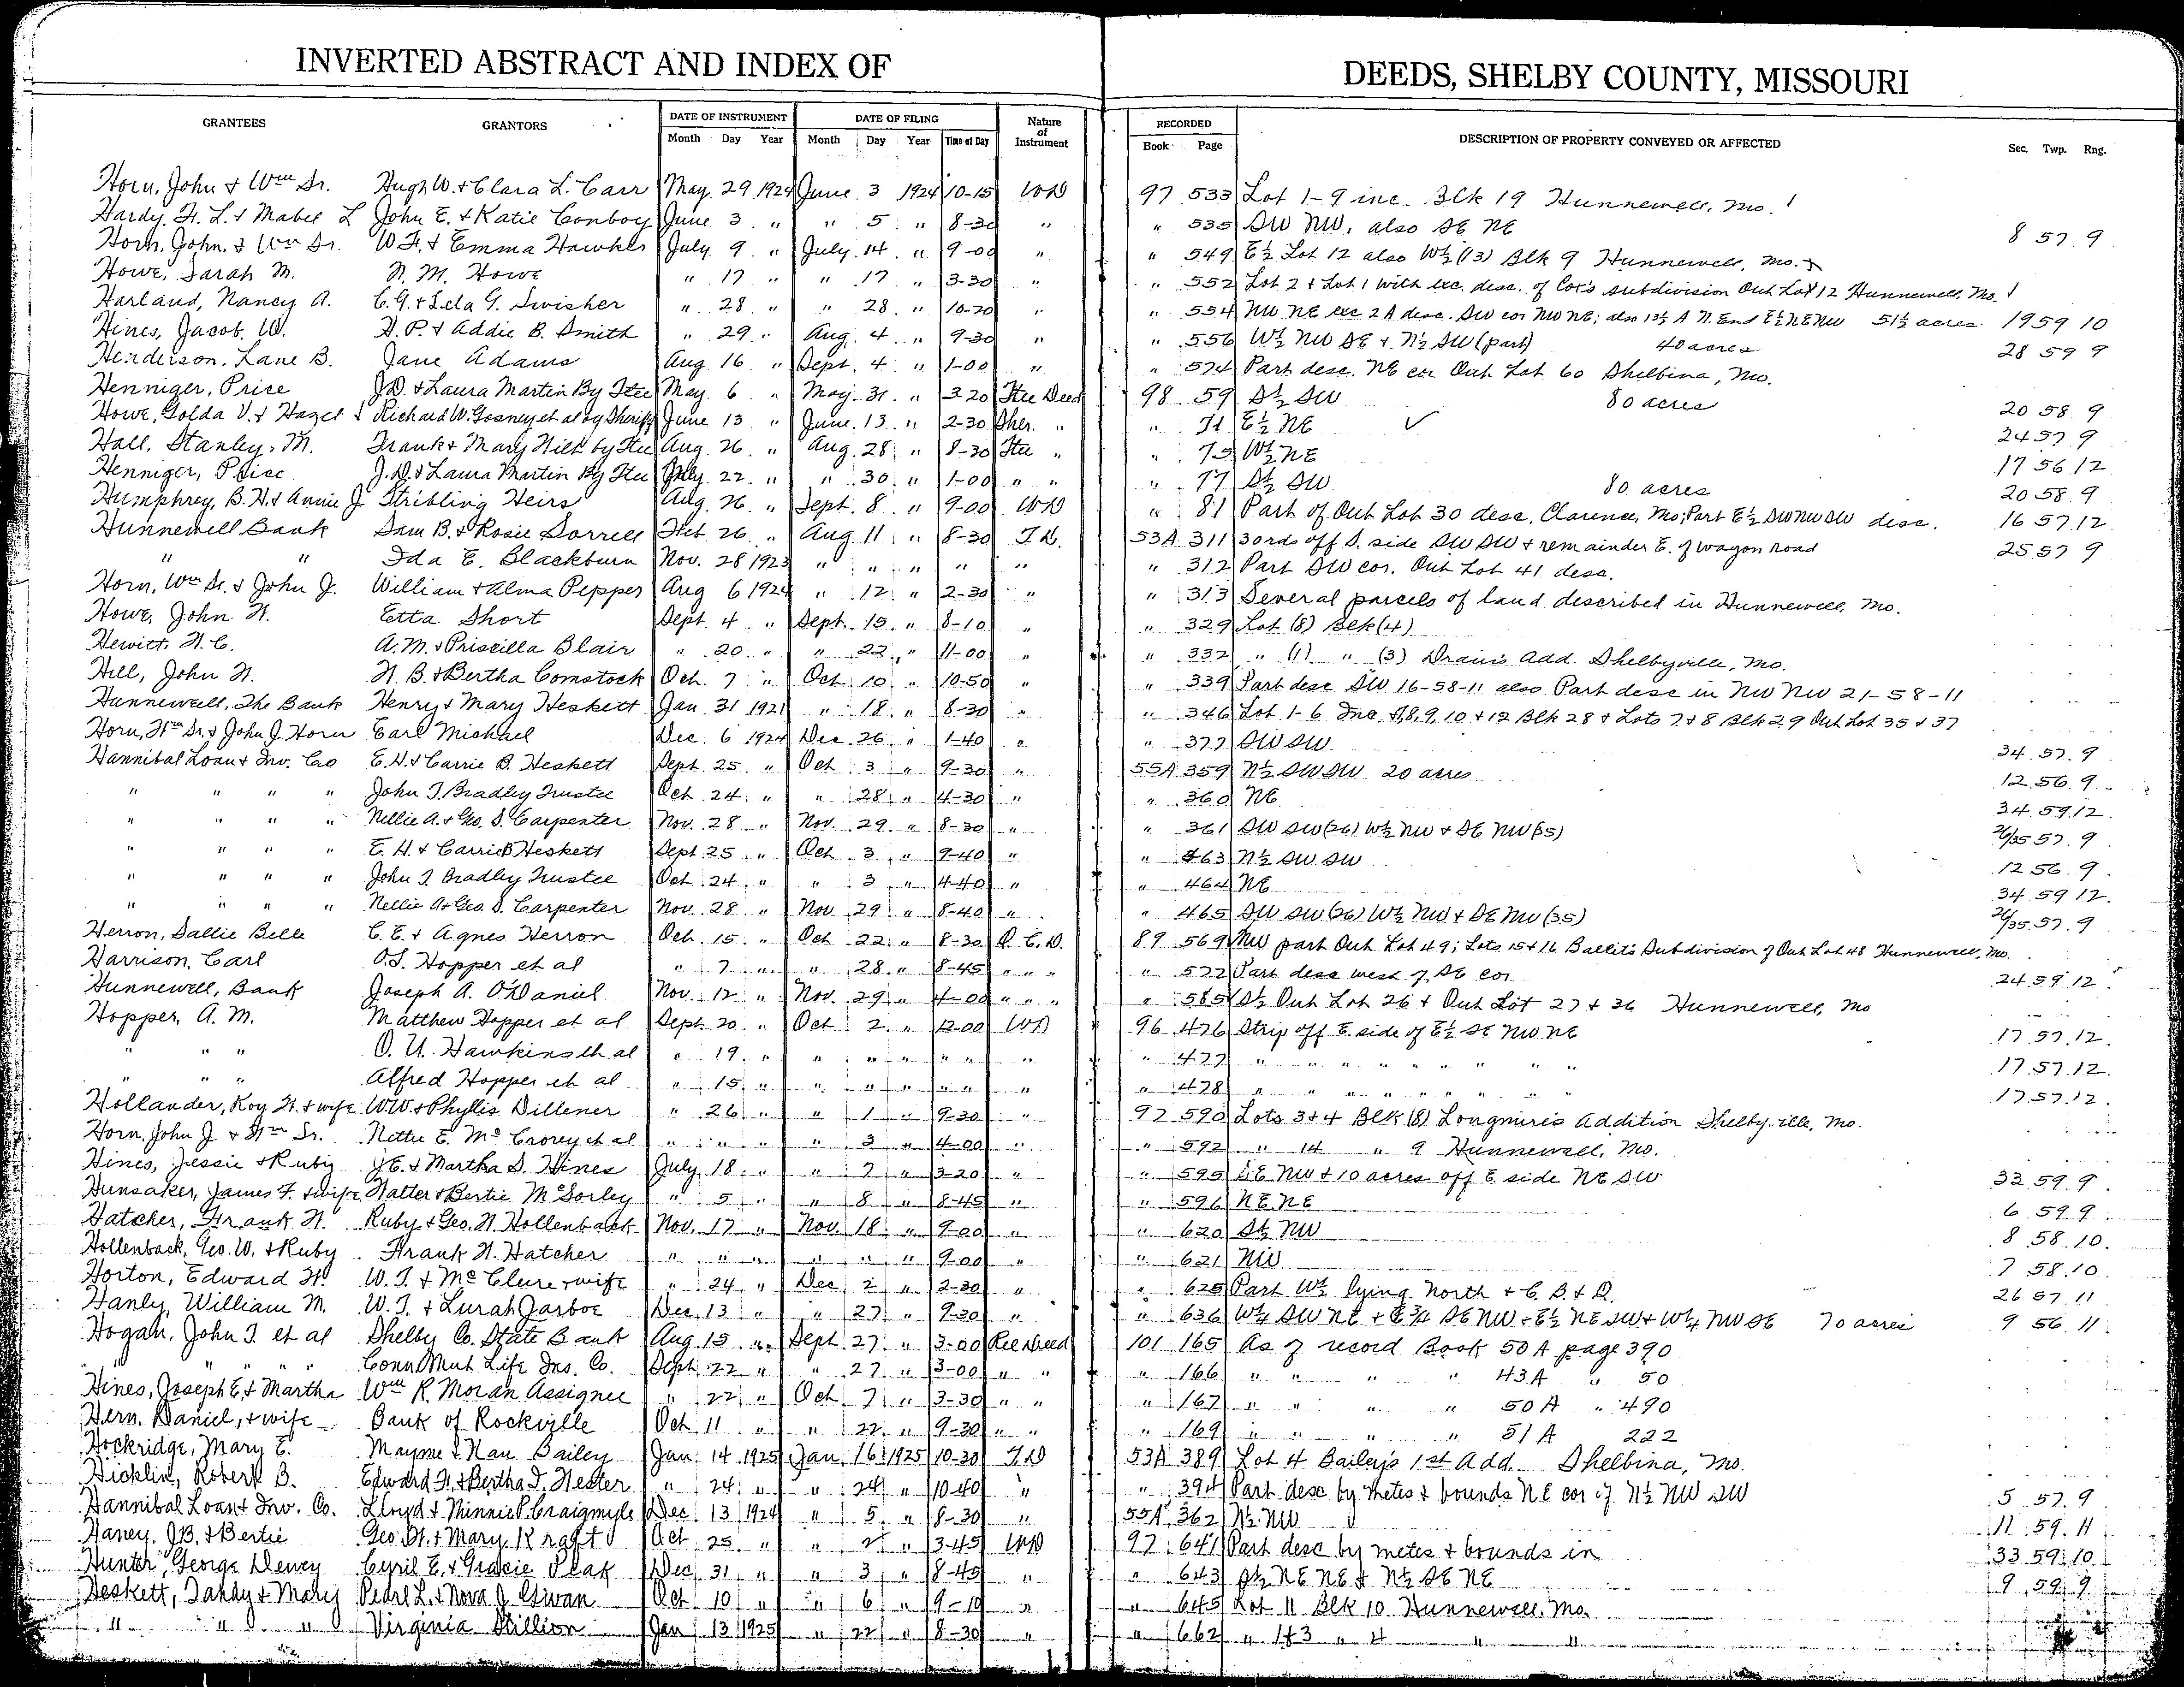 INVERTED ABSTRACT AND INDEX OF DEEDS, SHELBY COUNTY, MISSOURI
GRANTEES GRANTORS DATE OF INSTRUMENT DATE OF FILING Nature of Instrument RECORDED DESCRIPTION OF PROPERTY CONVEYED OR AFFECTED Sec. Twp. Rng.
Month Day Year Month Day Year Time of Day Book Page
Horn, John & Wm Sr. Hugh W. & Clara L. Carr May 29 1924 June 3 1924 10-15 WD 97 533 Lot 1-9 inc. Blk 19 Hunnewell, Mo.
Hardy, H. L. & Mabel L John E. & Katie Conboy June 3 " " 5 " 8-30 " " 535 SW NW, also SE NE 8 57 9
Horn, John & Wm Sr. W. F. & Emma Hawkes July 9 " July 14 " 9-00 " " 549 E½ Lot 12 also W½ (13) Blk 9 Hunnewell, Mo.
Howe, Sarah M. N. M. Howe " 17 " " 17 " 3-30 " " 552 Lot 2 & Lot 1 with exc. desc. of Cox's subdivision Out Lot 12 Hunnewell, Mo.
Harland, Nancy A. C. G. & Lela G. Swisher " 28 " " 28 " 10-20 " " 554 NW NE exc 2 A desc. SW cor NW NE; also 13½ A N. End E½ NE NW 51½ acres 19 59 10
Hines, Jacob W. H. P. & Addie B. Smith " 29 " Aug. 4 " 9-30 " " 556 W½ NW SE & N½ SW (part) 40 acres 28 59 9
Henderson, Lane B. Jane Adams Aug 16 " Sept. 4 " 1-00 " " 574 Part desc. NE cor Out Lot 60 Shelbina, Mo.
Henniger, Price J.D. & Laura Martin By Tee May 6 " May 31 " 3 20 Tee Deed 98 59 S½ SW 80 acres 20 58 9
Howe, Golda V. & Hazel Richard W. Gosney et al by Sheriff June 13 " June 13 " 2-30 Sher. " " 71 E½ NE 24 57 9
Hall, Stanley M. Frank & Mary Hill by Tee Aug. 26 " Aug. 28 " 8-30 Tee " " 75 W½ NE 17 56 12
Henniger, Price J.D. & Laura Martin By Tee July 22 " " 30 " 1-00 " " " 77 S½ SW 80 acres 20 58 9
Humphrey, B. H. & Annie J Stribling Heirs Aug. 26 " Sept. 8 " 9-00 WD " 81 Part of Out Lot 30 desc. Clarence, Mo; Part E½ SW NW SW desc. 16 57 12
Hunnewell Bank Sam B. & Rosie Sorrell Feb 26 " Aug 11 " 8-30 T.D. 53A 311 30 rds off S. side SW SW & remainder E. of wagon road 25 57 9
" " Ida E. Blackburn Nov. 28 1923 " " " " " " 312 Part SW cor. Out Lot 41 desc.
Horn, Wm Sr. & John J. William & Alma Pepper Aug 6 1924 " 12 " 2-30 " " 313 Several parcels of land described in Hunnewell, Mo.
Howe, John H. Etta Short Sept. 4 " Sept. 15 " 8-10 " " 329 Lot (8) Blk (4)
Hewitt, H. C. A. M. & Priscilla Blair " 20 " " 22 " 11-00 " " 332 " (1) " (3) Drain's Add. Shelbyville, Mo.
Hill, John H. H. B. & Bertha Comstock Oct. 7 " Oct. 10 " 10-50 " " 339 Part desc SW 16-58-11 also Part desc in NW NW 21-58-11
Hunnewell, The Bank Henry & Mary Heskett Jan 31 1921 " 18 " 8-30 " " 346 Lot 1-6 Inc. 7,8,9,10 & 12 Blk 28 & Lots 7 & 8 Blk 29 Out Lot 35 & 37
Horn, Wm Sr. & John J. Horn Earl Michael Dec. 6 1924 Dec. 26 " 1-40 " " 377 SW SW 34 57 9
Hannibal Loan & Inv. Co E. H. & Carrie B. Heskett Sept. 25 " Oct 3 " 9-30 " 55A 359 N½ SW SW 20 acres 12 56 9
" " " " John T. Bradley Trustee Oct 24 " " 28 " 4-30 " " 360 NE 34 59 12
" " " " Nellie A. & Geo. S. Carpenter Nov. 28 " Nov. 29 " 8-30 " " 361 SW SW (26) W½ NW & SE NW (35) 26/35 57 9
" " " " E. H. & Carrie B Heskett Sept 25 " Oct 3 " 9-40 " " 463 N½ SW SW 12 56 9
" " " " John T. Bradley Trustee Oct 24 " " 3 " 4-40 " " 464 NE 34 59 12
" " " " Nellie A & Geo. S. Carpenter Nov. 28 " Nov 29 " 8-40 " " 465 SW SW (26) W½ NW & SE NW (35) 26/35 57 9
Herron, Sallie Belle C. E. & Agnes Herron Oct. 15 " Oct 22 " 8-30 Q. C. D. 89 569 NW part Out Lot 49; Lots 15 & 16 Ballit's Subdivision of Out Lot 48 Hunnewell, Mo.
Harrison, Carl O. S. Hopper et al " 7 " " 28 " 8-45 " " " " 572 Part desc west of SE cor 24 59 12
Hunnewell, Bank Joseph A. O'Daniel Nov. 12 " Nov. 29 " 4-00 " " " " 585 S½ Out Lot 26 & Out Lot 27 & 36 Hunnewell, Mo
Hopper, A. M. Matthew Hopper et al Sept. 20 " Oct 2 " 12-00 WD 96 476 Strip off E side of E½ SE NW NE 17 57 12
" " " O. U. Hawkins et al " 19 " " " " " " " 477 " " " " " " 17 57 12
" " " Alfred Hopper et al " 15 " " " " " " " 478 " " " " " " 17 57 12
Hollander, Roy H. & wife W.W. & Phyllis Dillener " 26 " " 1 " 9-30 " 97 590 Lots 3 & 4 Blk (8) Longmire's Addition Shelbyville, Mo.
Horn, John J. & Wm Sr. Nettie E. McCrory et al " " " " 3 " 4-00 " " 592 " 14 " 9 Hunnewell, Mo.
Hines, Jessie & Ruby J. E. & Martha S. Hines July 18 " " 7 " 3-20 " " 595 SE NW & 10 acres off E side NE SW 33 59 9
Hunsaker, James F. & wife Walter & Bertie McSorley " 5 " " 8 " 8-45 " " 596 NE NE 6 59 9
Hatcher, Frank H. Ruby & Geo. W. Hollenback Nov. 17 " Nov. 18 " 9-00 " " 620 S½ NW 8 58 10
Hollenback, Geo. W. & Ruby Frank H. Hatcher " " " " " " 9-00 " " 621 NW 7 58 10
Horton, Edward H. W. T. & McClure & wife " 24 " Dec 2 " 2-30 " " 625 Part W½ lying North & C. B. & Q. 26 57 11
Hanly, William M. W. T. & Lurah Jarboe Dec. 13 " " 27 " 9-30 " " 636 W¼ SW NE & E¾ SE NW & E½ NE SW & W¼ NW SE 70 acres 9 56 11
Hogan, John T. et al Shelby Co. State Bank Aug 15 " Sept 27 " 3-00 Rel Deed 101 165 As of record Book 50A page 390
" " " " Conn Mut Life Ins. Co. Sept. 22 " " 27 " 3-00 " " " 166 " " " " 43A " 50
Hines, Joseph E. & Martha Wm R. Moran Assignee " 22 " Oct 7 " 3-30 " " " 167 " " " " 50A " 490
Hern, Daniel, & wife Bank of Rockville Oct 11 " " 22 " 9-30 " " " 169 " " " " 51A 222
Hockridge, Mary E. Mayme & Nan Bailey Jan. 14 1925 Jan. 16 1925 10-30 T D 53A 389 Lot 4 Bailey's 1st Add. Shelbina, Mo.
Hicklin, Robert B. Edward H. & Bertha I. Hester " 24 " " 24 " 10-40 " " 394 Part desc by metes & bounds NE cor of N½ NW SW 5 57 9
Hannibal Loan & Inv. Co. Lloyd & Minnie P. Craigmyle Dec. 13 1924 " 5 " 8-30 " 55A 362 N½ NW 11 59 11
Haney, J.B. & Bertie Geo. H. & Mary Kraft Oct 25 " " 2 " 3-45 WD 97 641 Part desc by metes & bounds in 33 59 10
Hunter, George Dewey Cyril E. & Gracie Peak Dec 31 " " 3 " 8-45 " " 643 S½ NE NE & N½ SE NE 9 59 9
Heskett, Tandy & Mary Pearl L. & Nova J. Eswan Oct 10 " " 6 " 9-10 " " 645 Lot 11 Blk 10 Hunnewell, Mo.
" " " Virginia Stillion Jan 13 1925 " 22 " 8-30 " " 662 " 1 & 3 " 4 " "